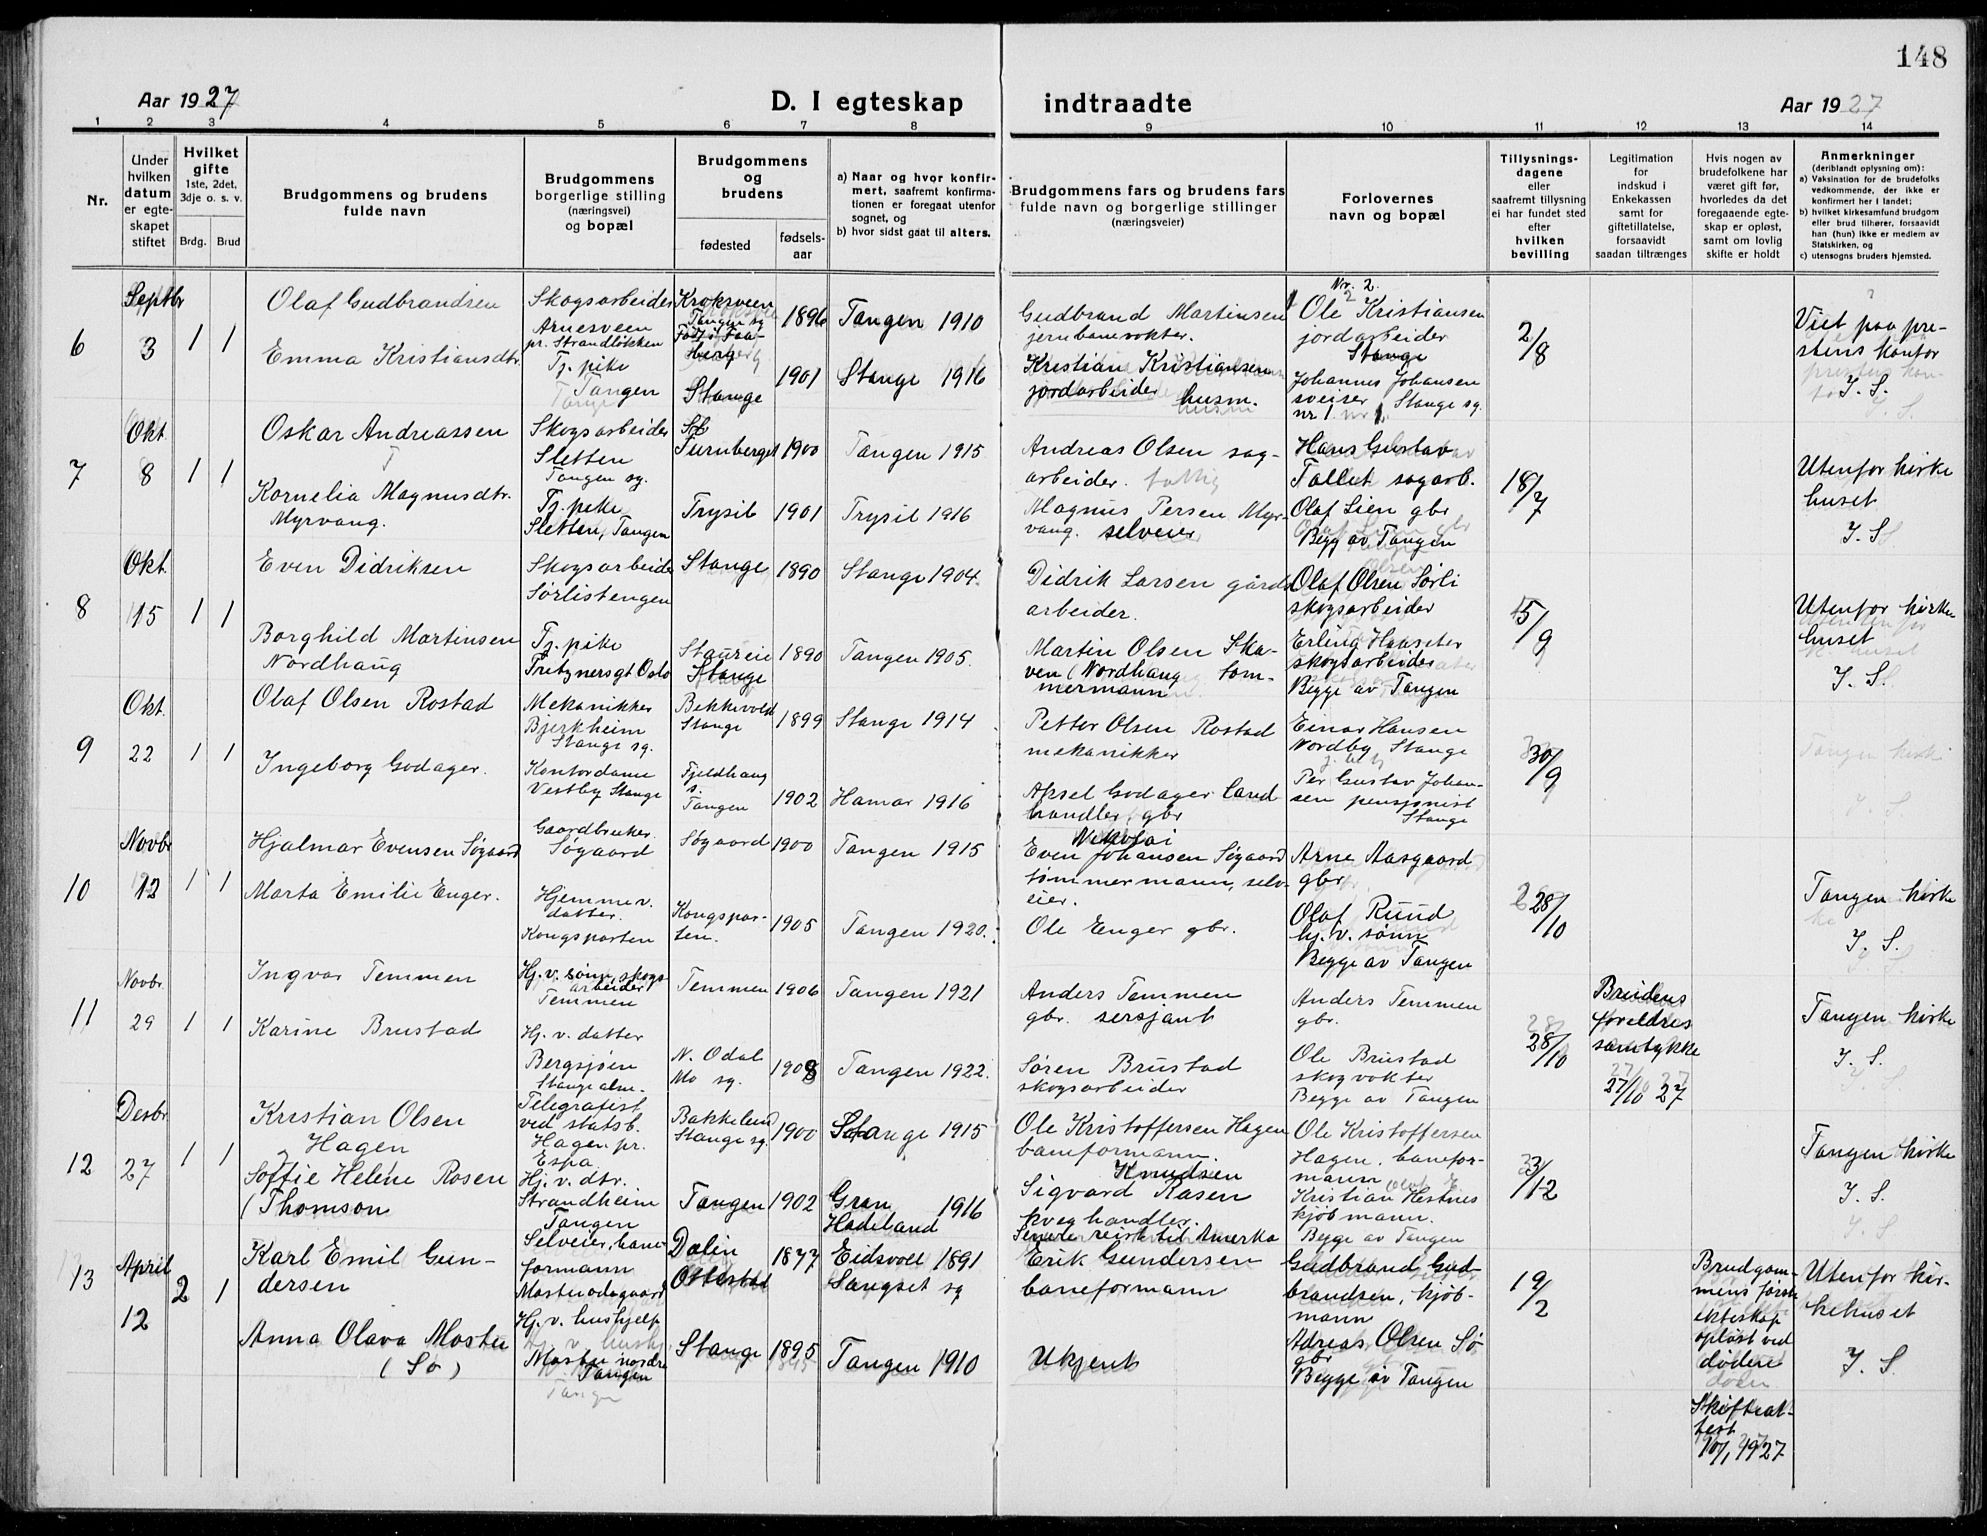 148
Aar 1927
D. I egteskap indtraadte
Aar 1927
1 2 3 4 5 6 7 8 9 10 11 12 13 14
Nr.
Under hvilken datum er egteskapet stiftet
Hvilket gifte
1ste, 2det, 3dje o. s. v.
Brdg. Brud
Brudgommens og brudens fulde navn
Brudgommens borgerlige stilling (næringsvei) og bopæl
Brudgommens og brudens
fødested
fødselsaar
a) Naar og hvor konfirmert, saafremt konfirmationen er foregaat utenfor sognet, og
b) hvor sidst gaat til alters.
Brudgommens fars og brudens fars fulde navn og borgerlige stillinger (næringsveier)
Forlovernes navn og bopæl
Tillysningsdagene eller saafremt tillysning ei har fundet sted efter hvilken bevilling
Legitimation for indskud i Enkekassen samt for giftetillatelse, forsaavidt saadan tiltrænges
Hvis nogen av brudefolkene har været gift før, hvorledes da det foregaaende egteskap er opløst, samt om lovlig skifte er holdt
Anmerkninger
(deriblandt oplysning om):
a) Vaksination for de brudefolks vedkommende, der ikke er konfirmert her i landet;
b) hvilket kirkesamfund brudgom eller brud tilhører, forsaavidt han (hun) ikke er medlem av Statskirken, og
c) utensogns bruders hjemsted.
6
Septbr
3
1 1
Olaf Gudbrandsen
Emma Kristiansdtr.
Skogsarbeider
Arnesveen
pr. Strandløkken
Tj. pike
Tangen
Kroksveen
Tangen sg
Stange
1896
1901
Tangen 1910
Stange 1916
Gudbrand Martinsen
jernbanevokter.
Kristian Kristiansen
jordarbeider husm.
Nr. 2.
Ole Kristiansen
jordarbeider
Stange
Johannes Johansen
sveiser Stange sg.
nr 1.
2/8
Viet paa pre-
stens kontor
I. S.
7
Okt
8
1 1
Oskar Andreassen
Kornelia Magnusdtr.
Myrvang.
Skogsarbeider
Sletten
Tangen sg.
Tj. pike
Sletten, Tangen
Furuberget
Trysil
1900
1901
Tangen 1915
Trysil 1916
Andreas Olsen sag-
arbeider.
Magnus Persen Myr-
vang. selveier
Hans Gustav
Tallet sagarb.
Olaf Lien gbr
Begg av Tangen
18/7
Utenfor kirke
huset
I. S.
8
Okt.
15
1 1
Even Didriksen
Borghild Martinsen
Nordhaug
Skogsarbeider
Sørlistengen
Tj. pike
Oslo
Stange
Staureie
Stange
1890
1890
Stange 1904.
Tangen 1905.
Didrik Larsen gårds
arbeider.
Martin Olsen Ska-
ven (Nordhaug tom-
mermann
Olaf Olsen Sørli
skogsarbeider
Erling Haaseter
skogsarbeider
Begge av Tangen
15/9
Utenfor kirke
huset
I. S.
9
Okt.
22
1 1
Olaf Olsen Rostad
Ingeborg Godager.
Mekanikker
Bjerkheim
Stange sg.
Kontordame
Vestby Stange
Bekkevold
Stange
Fjeldhaug
s.
Tangen
1899
1902
Stange 1914
Hamar 1916
Petter Olsen Rostad
mekanikker
Aksel Godager land
handler, gbr
Einar Hansen
Nordby Stange
Per Gustav Johan-
sen pensjonist
Stange
30/9
Tangen kirke
I. S
10
Novbr
12
1 1
Hjalmar Evensen Søgaard
Marta Emilie Enger.
Gaardbruker.
Søgaard
Hjemmev.
datter.
Kongsparten
Søgaard
Kongspar-
ten.
1900
1905
Tangen 1915
Tangen 1920.
Nikolai
Even Johansen Søgaard
tømmermann, selv-
eier.
Ole Enger gbr.
Arne Aasgaard
gbr.
Olaf Rund
hj. v. sønn
Begge av Tangen
28/10
Tangen kirke
I. S.
11
Novbr.
29
1 1
Ingvar Temmen
Karine Brustad
Hj. v. sønn, skogs
arbeider
Temmen
Hj. v. datter
Bergsjøen
Stange alm.
Temmen
N. Odal
Mo sg.
1906
1908
Tangen 1921
Tangen 1922.
Anders Temmen
gbr. sersjant
Søren Brustad
skogsarbeider
Anders Temmen
gbr.
Ole Brustad
skogvokter
Begge av Tangen
28/10
Brudens
foreldres
samtykke
27/10 27
Tangen kirke
I. S.
12
Desbr
27
1 1
Kristian Olsen
Hagen
Soffie Helene Rosen
(Thomson
Telegrafist
ved statsb.
Hagen pr.
Espa
Hj. v. dtr.
Strandheim
Tangen
Bakkelund
Stange sg.
Tangen
1900
1902
Stange 1915
Gran 1916
Hadeland
Ole Kristoffersen Hagen
baneformann.
Knudsen
Sigvard Rasen
kveghandler.
Senere reist til Amerka
Ole Kristoffersen
Hagen, banefor-
mann
Kristian Hestnes
kjøbmann.
Begge av Tangen
3/12
Tangen kirke
I. S.
13
April
12
2 1
Karl Emil Gun-
dersen
Anna Olava Mostue
(Sø)
Selveier, bane-
formann
Mostuodegaard
Hj. v. hushjelp
Mostue nordre
Tangen
Dalin
Ottestad
Stange
1877
1895
Eidsvoll 1891
Langset sg
Tangen 1910
Erik Gundersen
baneformann
Ukjent
Gudbrand Gud-
brandsen, kjøb-
mann
Adreas Olsen Sø
gbr
Begge av Tangen
19/2
Brudgom-
mens første
ekteskap
opløst ved
døden
Skifteat-
test
10/1 1927
Utenfor kir-
kehuset
I. S